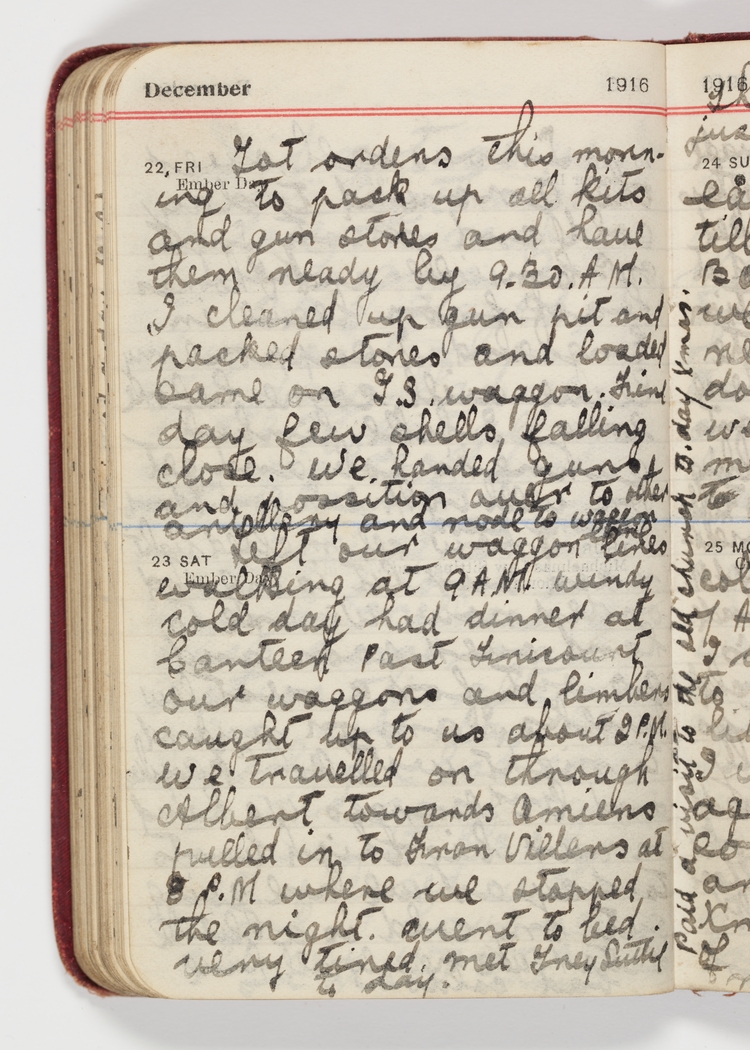 December 1916
22, FRI Got orders this morn-
Ember Day
ing to pack up all kits
and gun stores and have
them ready by 9.30. A.M.
I cleaned up gun pit and
packed stores and loaded
same on G.S. waggon. Fine
day few shells falling
close. We handed guns
and possition over to other
artillery and rode to waggon
lines
23 SAT Left our waggon lines
Ember Day
walking at 9 A.M. windy
cold day had dinner at
Canteen Past Fricourt
our waggons and limbers
caught up to us about 2 P.M.
we travelled on through
Albert towards Amiens
pulled in to Fran Villers at
8 P.M where we stopped
the night. went to bed.
very tired. met Frey
to day.
1916
jus
24 SU
till
25 MO
Paid a visit to the old church to.day Xmas.